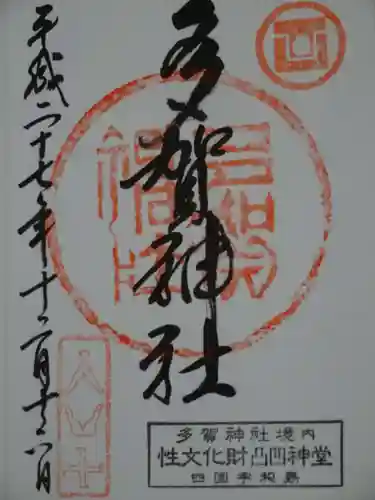 多賀神社
平成二十七年十二月十八日
多賀神社境内
性文化財凸凹神堂
四国宇和島